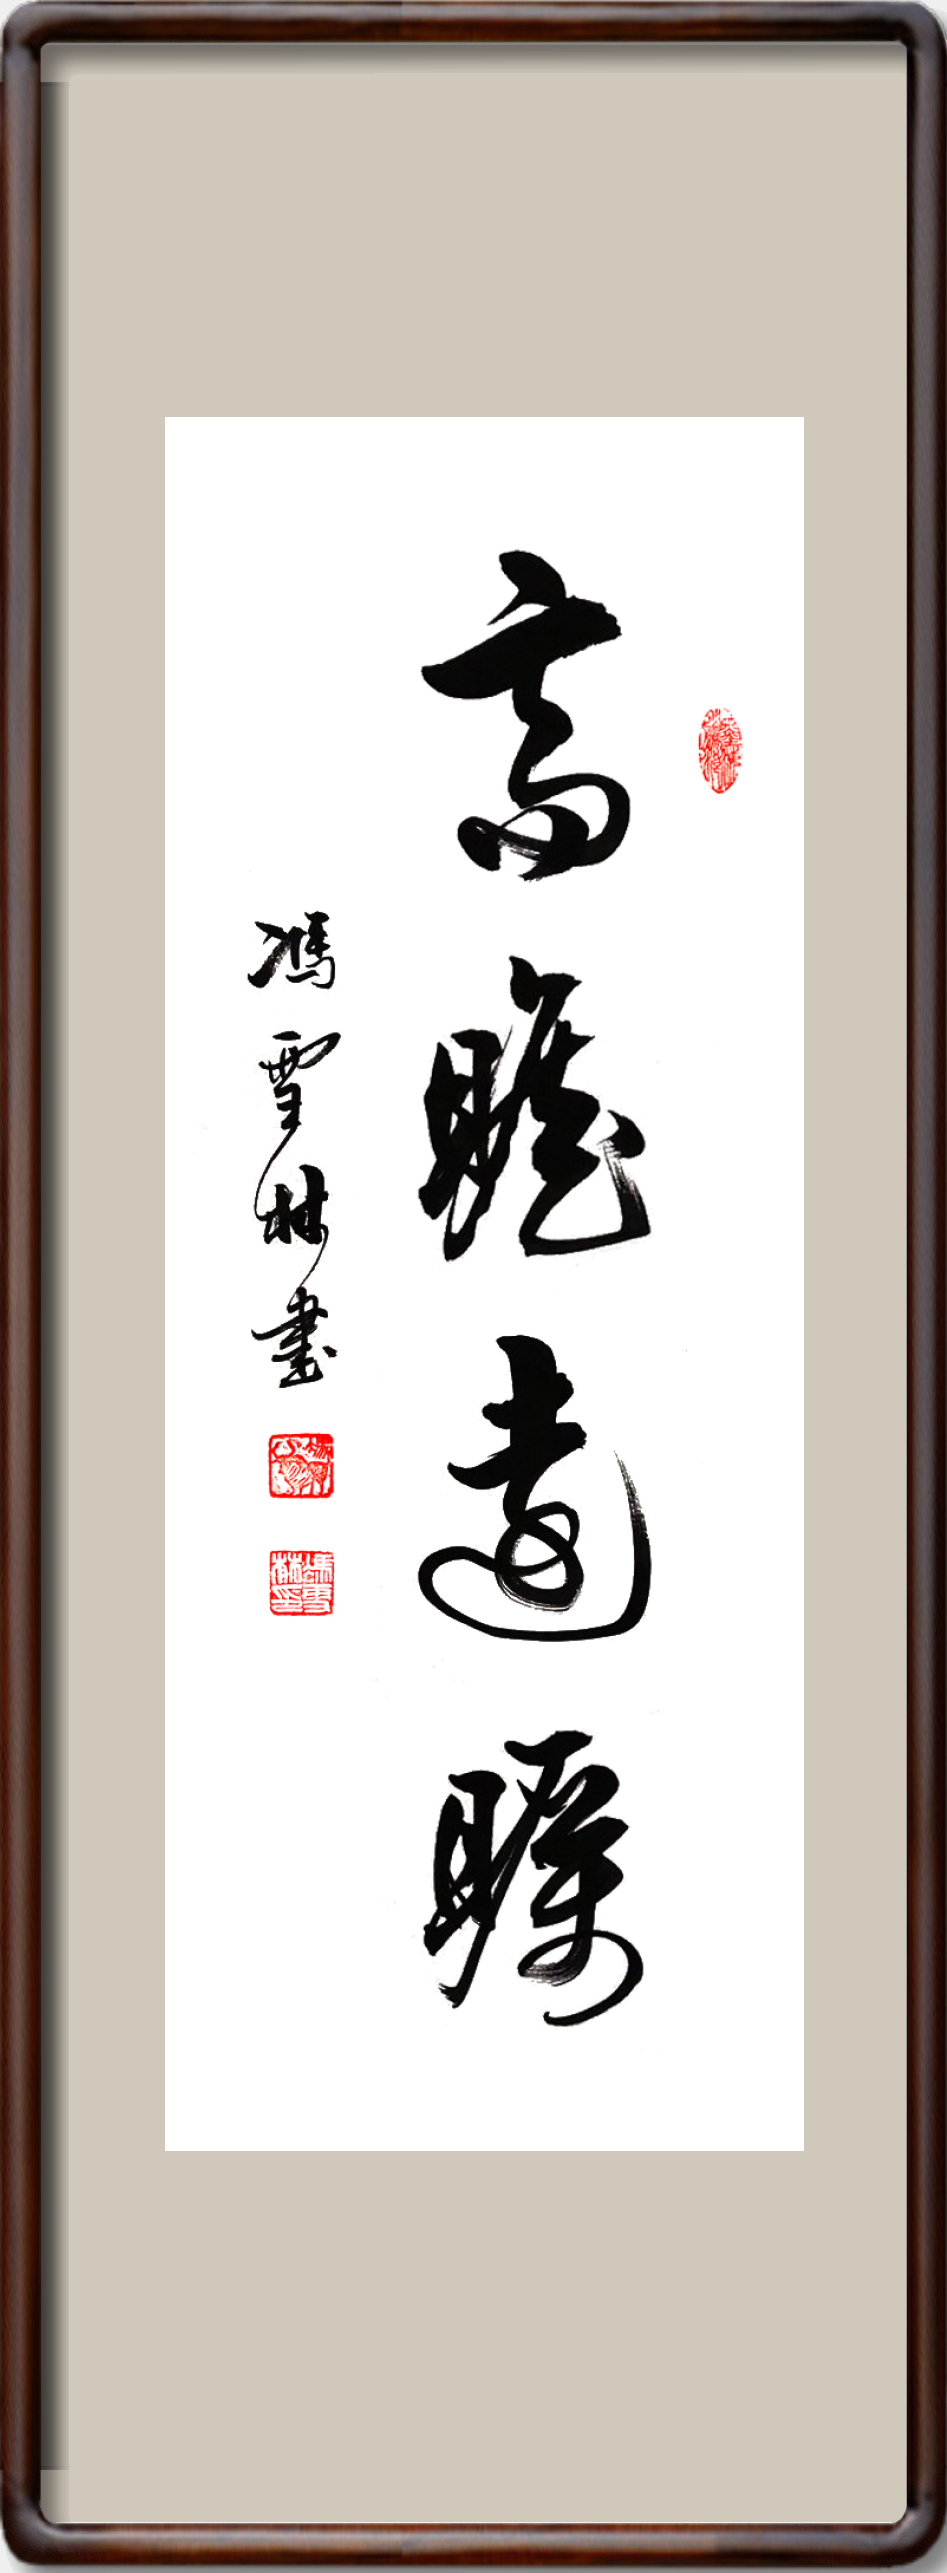 高瞻遠矚
馮雪林書
馮雪林印